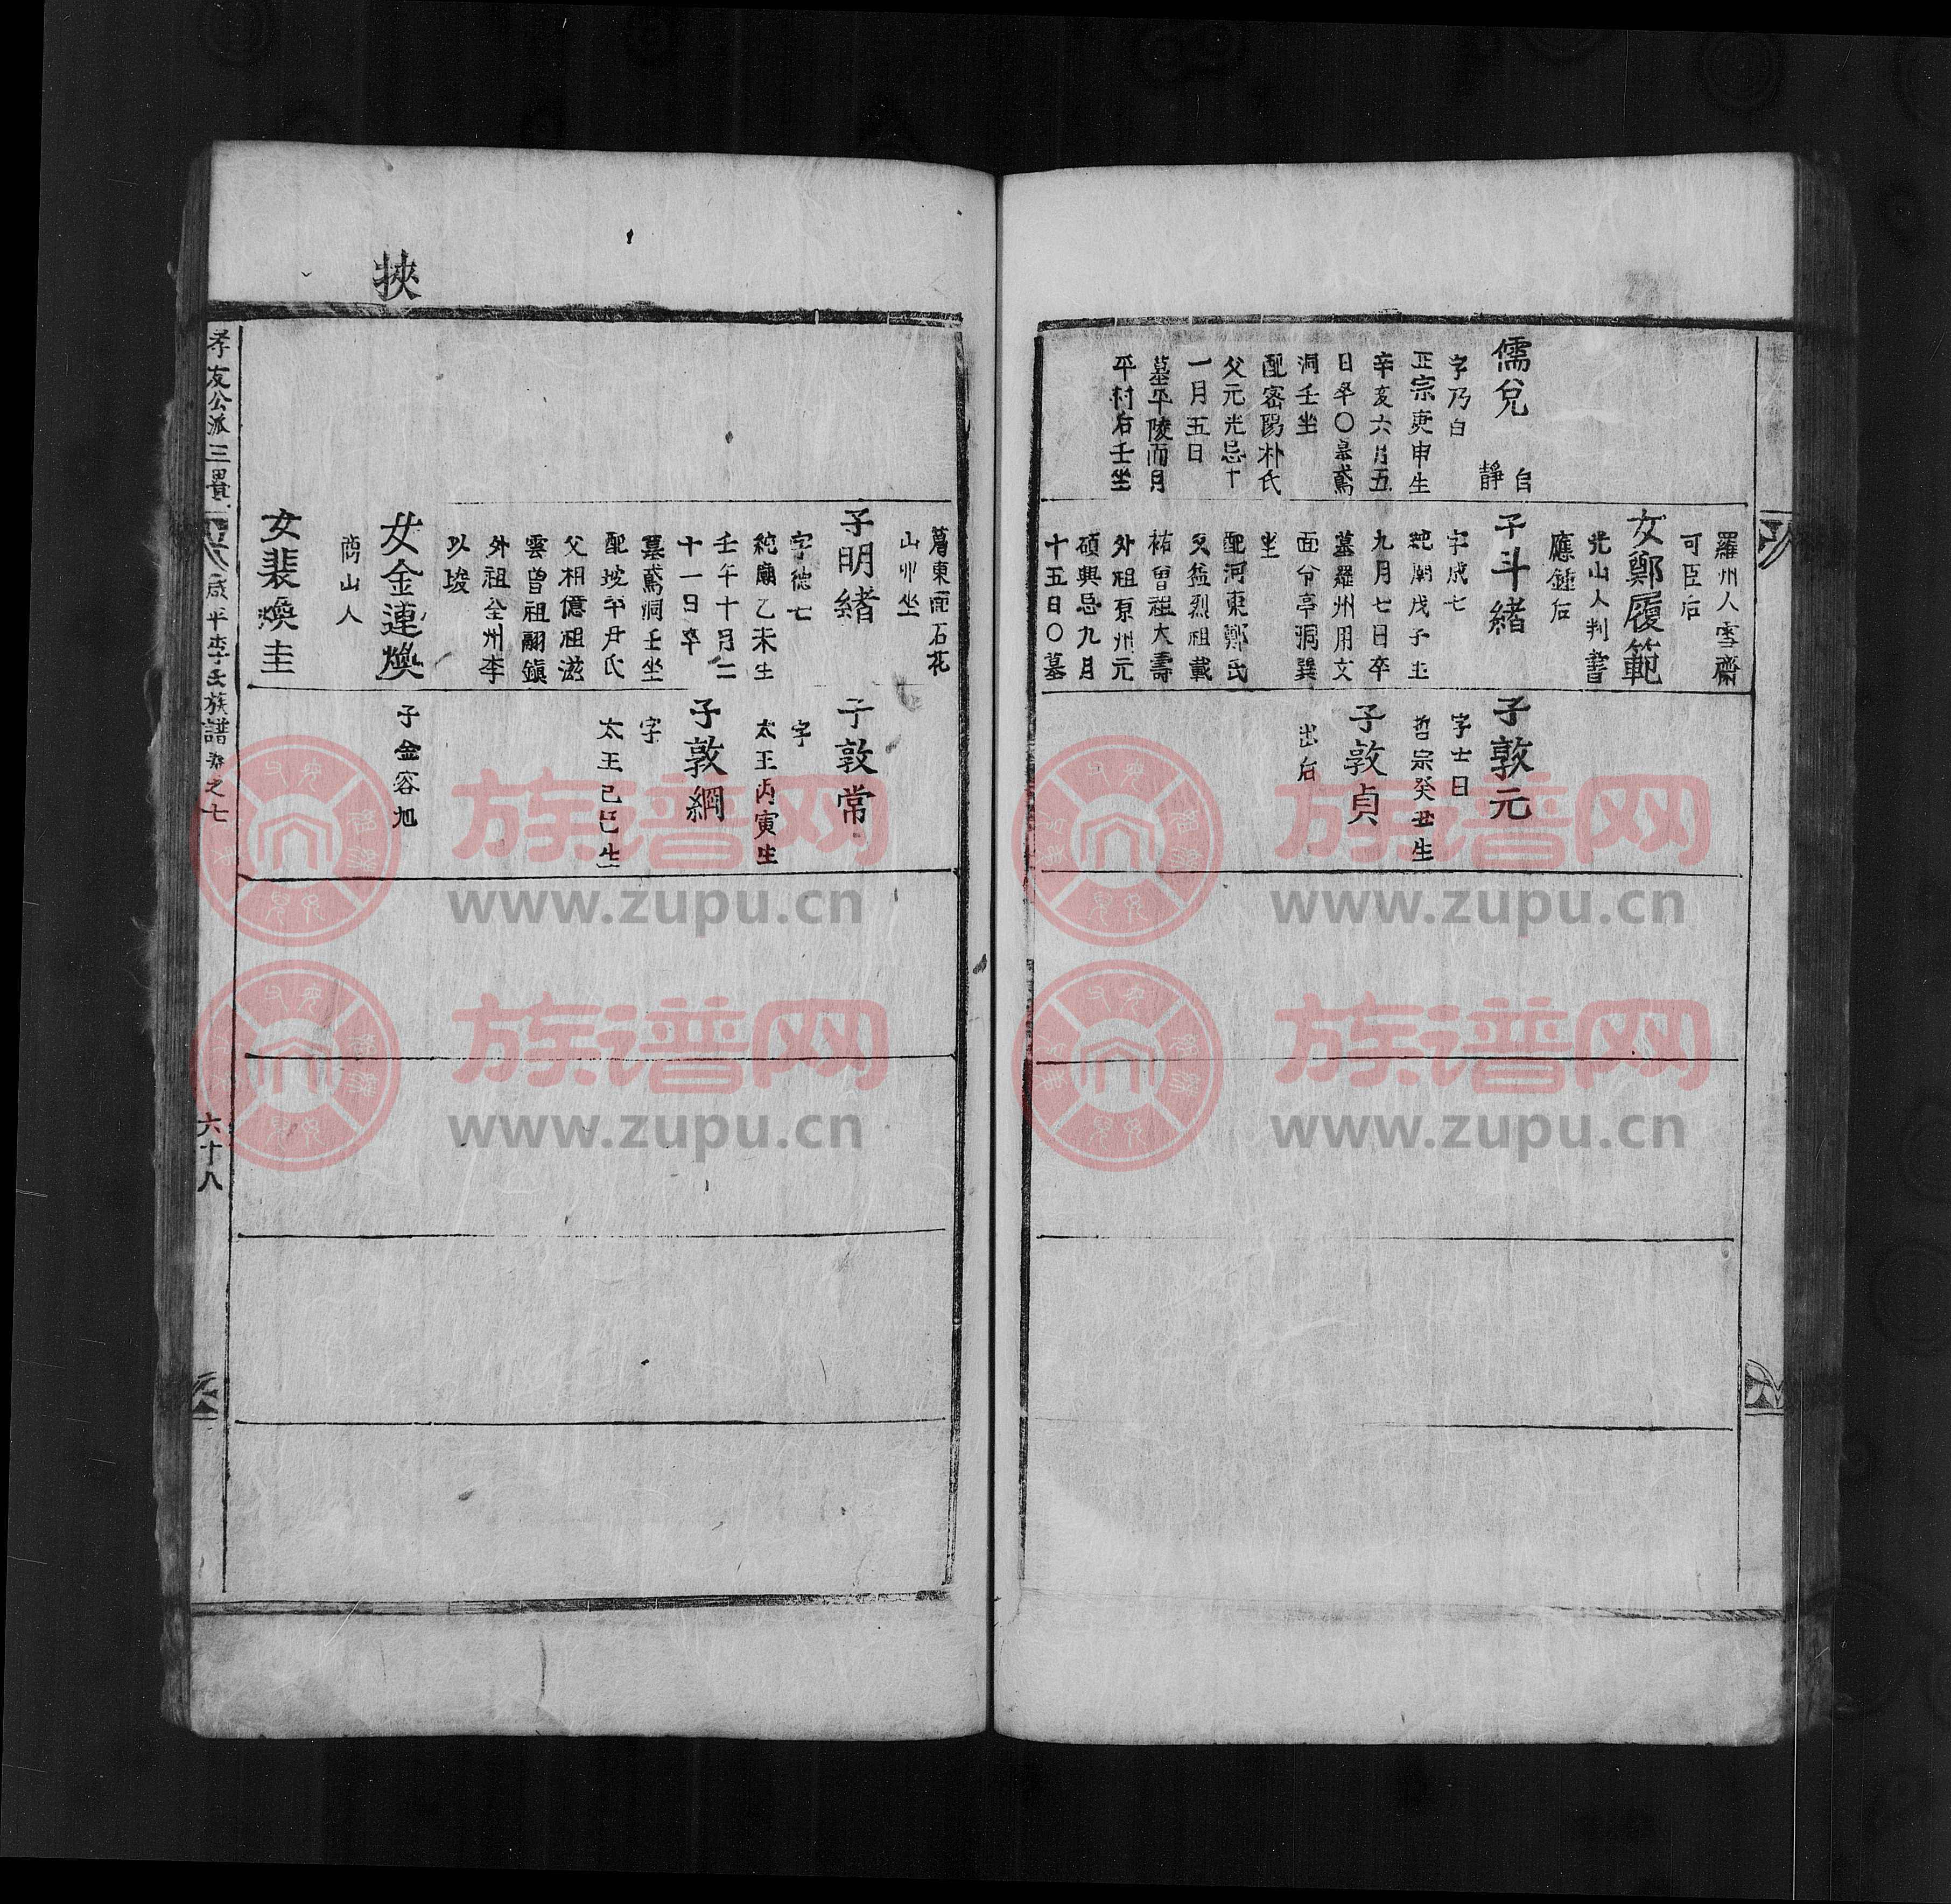 儒兌
自
靜
字乃白
正宗庚申生
辛亥六月五
日卒〇墓鳶
洞壬坐
配密陽朴氏
父元光忌十
一月五日
墓平陵面月
平村右壬坐
羅州人雪齋
可臣后
女鄭履範
光山人判書
應鍾后
子斗緒
字成七
純廟戊子生
九月七日卒
墓羅州用文
面兮亭洞巽
坐
配河東鄭氏
父益烈祖載
祐曾祖大壽
外祖原州元
碩興忌九月
十五日〇墓
子敦元
字士日
哲宗癸丑生
子敦貞
出后
葛東面石花
山卯坐
子明緒
字德七
純廟乙未生
壬午十月二
十一日卒
墓鳶洞壬坐
配坡平尹氏
父相億祖滋
雲曾祖嗣鎮
外祖全州李
以堎
女金連煥
商山人
女裴煥圭
子敦常
字
太王丙寅生
子敦綱
字
太王己巳生
子金容旭
孝友公派三疊
咸平李氏族譜卷之七
六十八
族谱网
www.zupu.cn
族谱网
www.zupu.cn
族谱网
www.zupu.cn
族谱网
www.zupu.cn